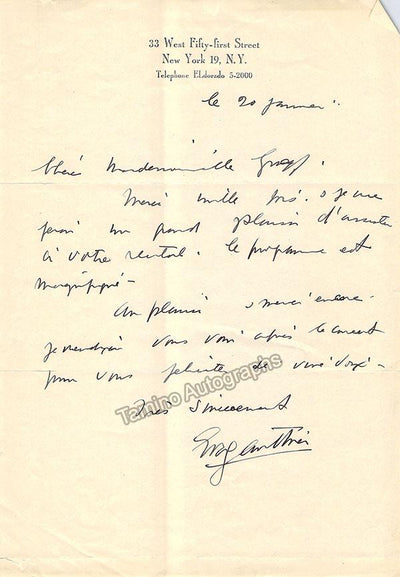 33 West Fifty-first Street
New York 19, N.Y.
Telephone ELdorado 5-2000
le 20 janvier.
Chère Mademoiselle
Merci mille fois. je me
ferai un grand plaisir d'assister
à votre recital. le programme est
magnifique -
Au plaisir merci encore.
je viendrai vous voir après le concert
pour vous de vive voix -
Tamino Autographs
très sincerement
Eva Gauthier